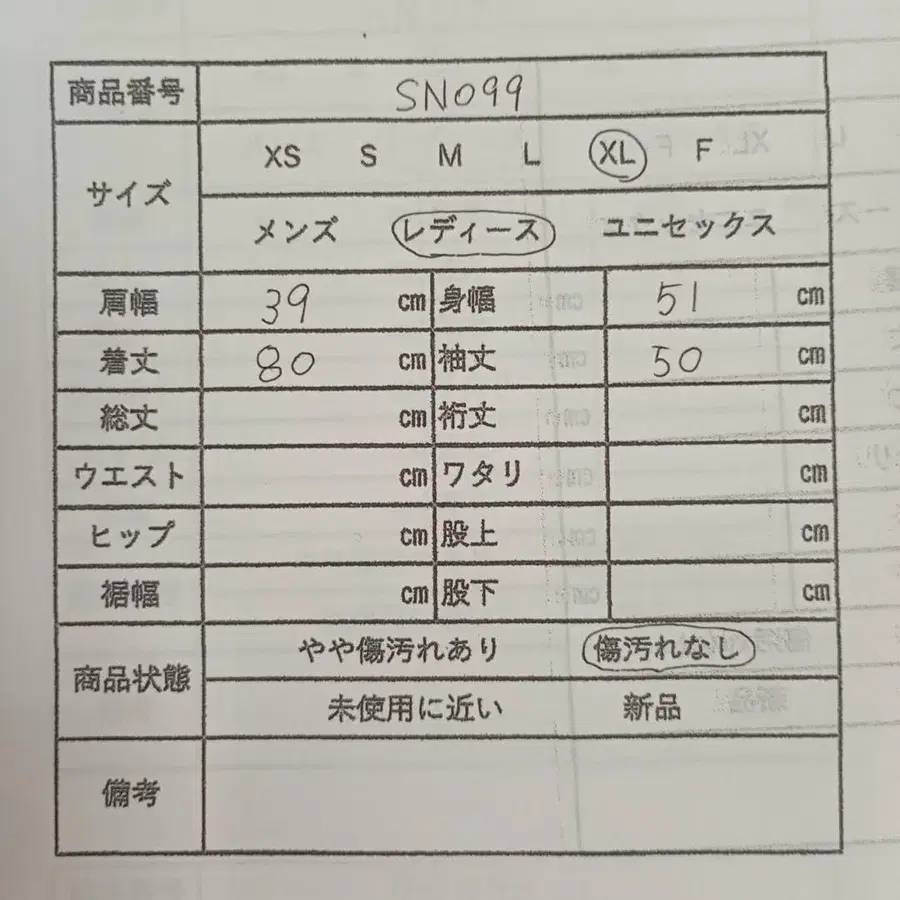 商品番号 SN099
サイズ XS S M L XL F
メンズ レディース ユニセックス
肩幅 39 cm 身幅 51 cm
着丈 80 cm 袖丈 50 cm
総丈 cm 裄丈 cm
ウエスト cm ワタリ cm
ヒップ cm 股上 cm
裾幅 cm 股下 cm
商品状態 やや傷汚れあり 傷汚れなし
未使用に近い 新品
備考